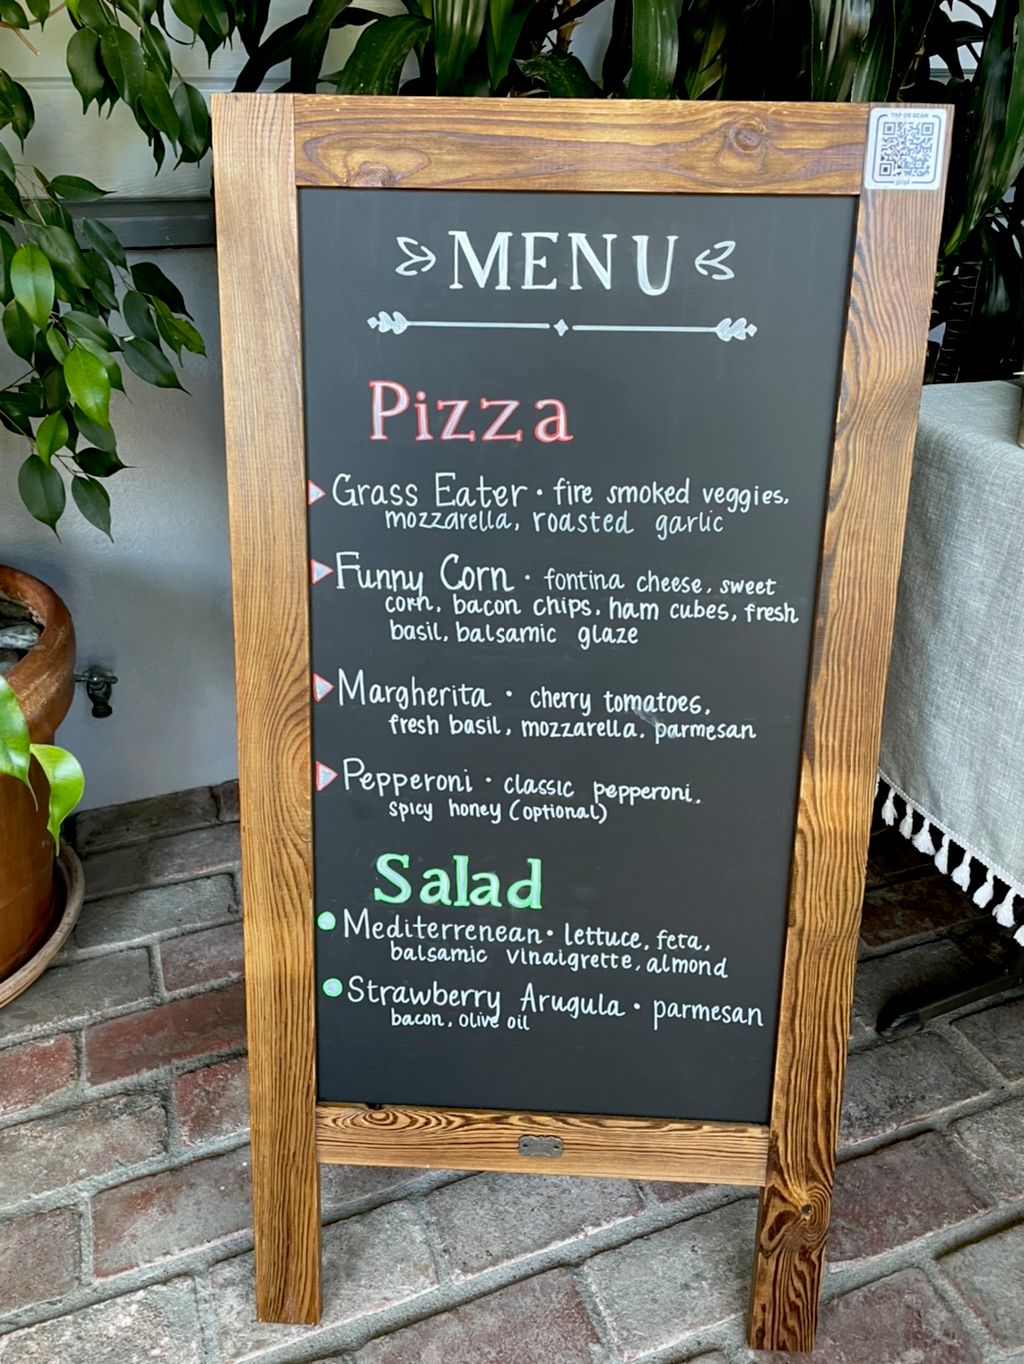 TAP OR SCAN
popl
MENU
Pizza
Grass Eater · fire smoked veggies,
mozzarella, roasted garlic
Funny Corn · fontina cheese, sweet
corn, bacon chips, ham cubes, fresh
basil, balsamic glaze
Margherita · cherry tomatoes,
fresh basil, mozzarella, parmesan
Pepperoni · classic pepperoni,
spicy honey (optional)
Salad
Mediterrenean · lettuce, feta,
balsamic vinaigrette, almond
Strawberry Arugula · parmesan
bacon, olive oil